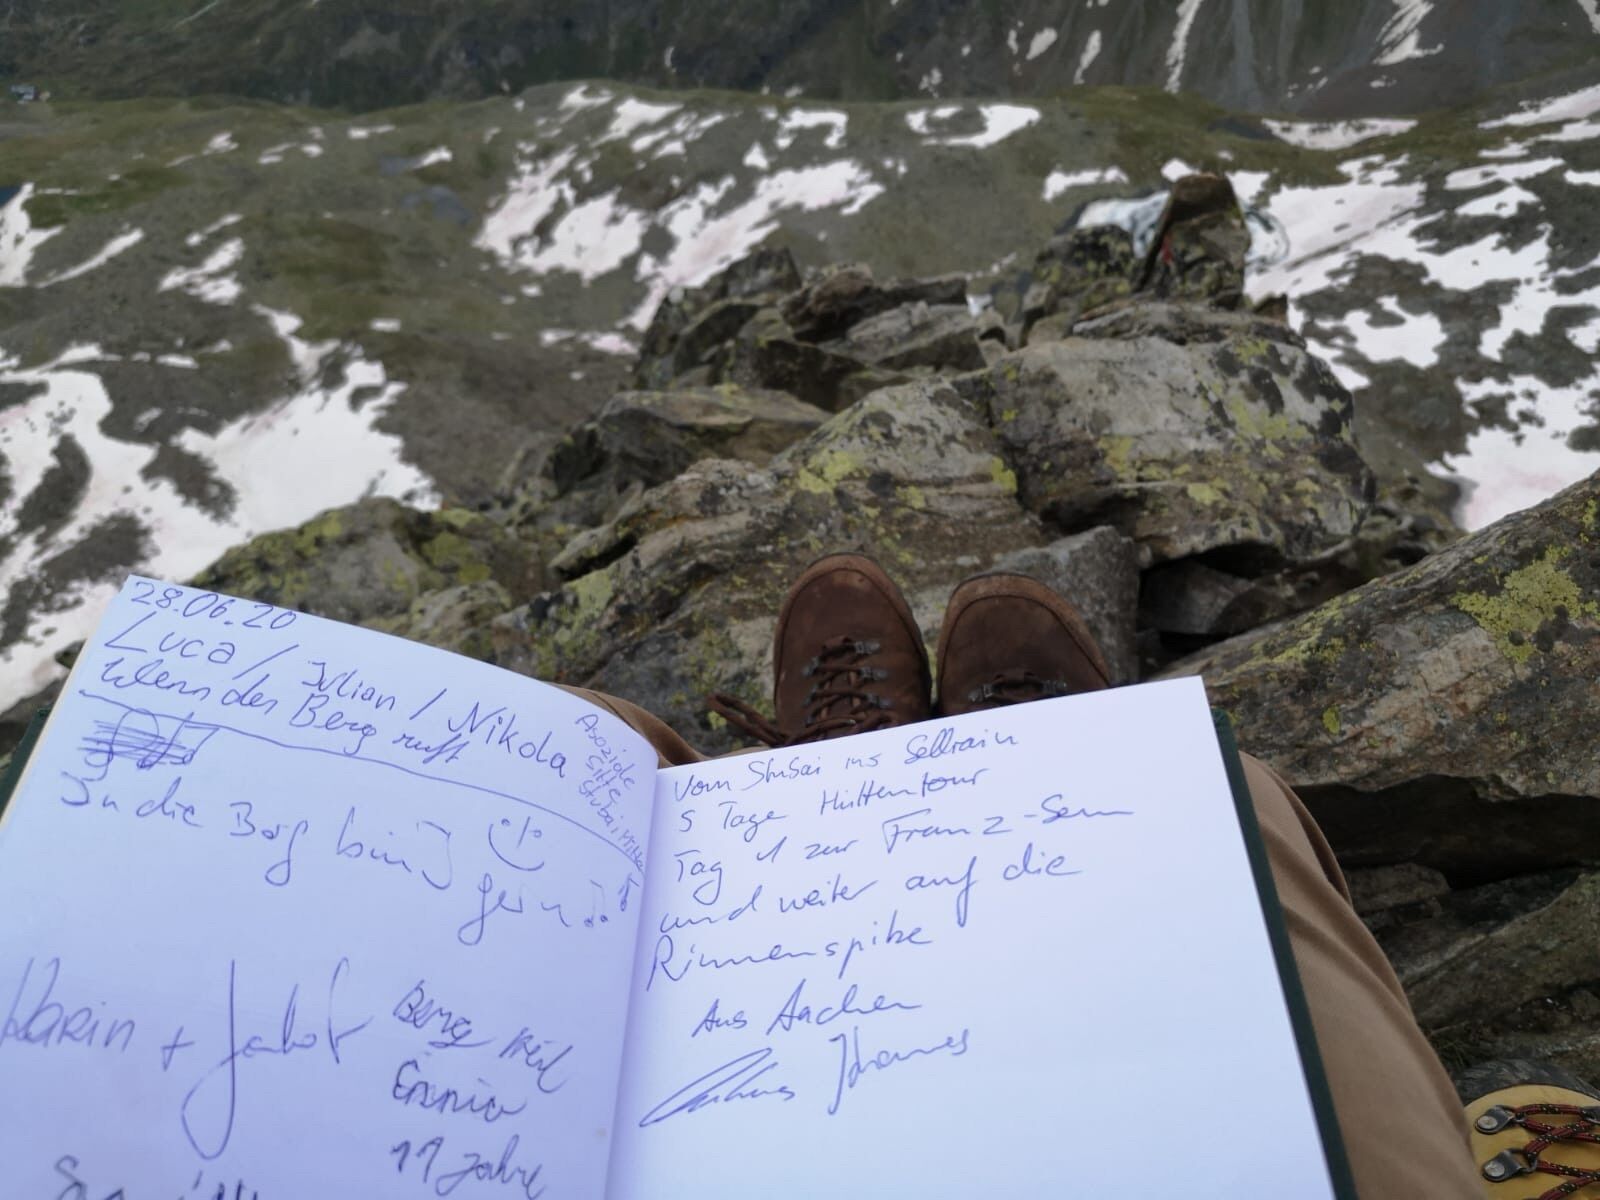 28.06.20
Luca / Julian / Nikola
Wenn der Berg ruft
Asoziale
Silte
Stubai Mitte
In die Berg bin I gern
Karin + Jakob
Berg Heil
11 Jahre
Vom Stubai ins Sellrain
5 Tage Hüttentour
Tag 1 zur Franz-Senn
und weiter auf die
Rinnenspitze
Aus Aachen
Johannes